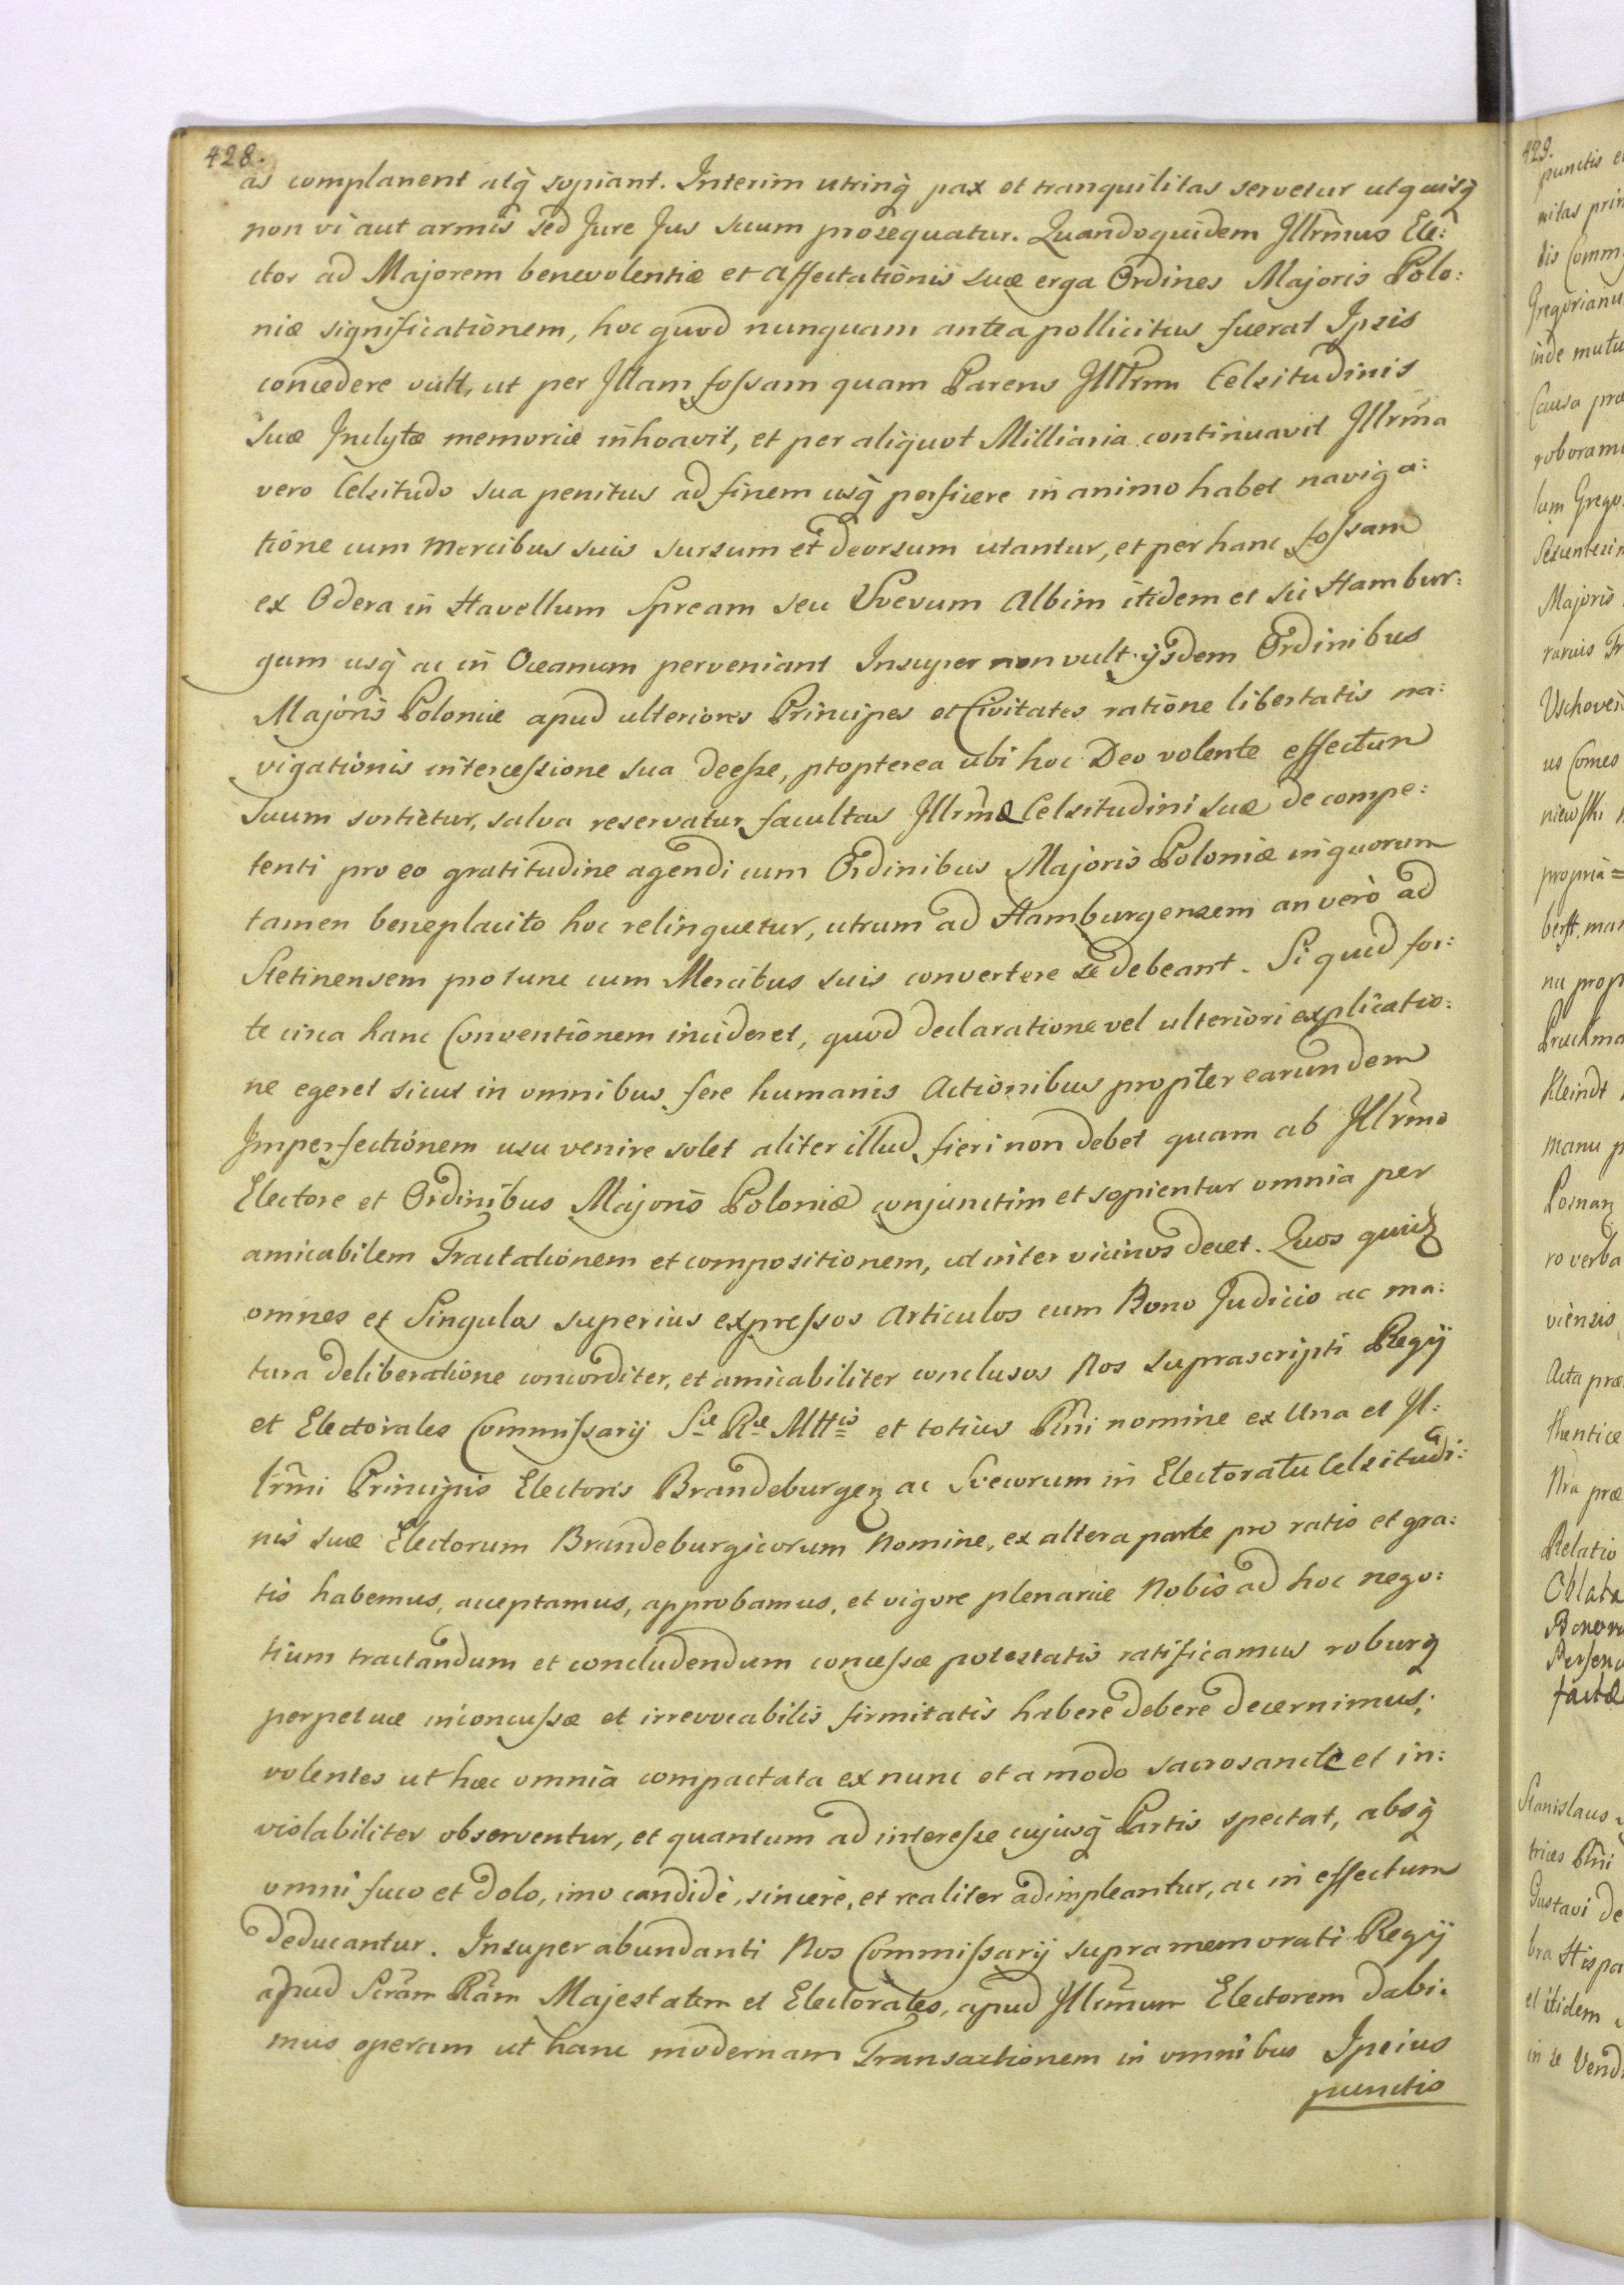 428.
as complanent atq̃ sopiant. Interim utrinq̃ pax et tranquilitas servetur utquisq̃
non vi aut armis sed Jure Jus suum prosequatur. Quandoquidem Jllr̃mus Ele:
ctor ad Majorem benevolentiæ et Affectationis suæ erga Ordines Majoris Polo:
niæ significationem, hoc quod nunquam antea pollicitus fuerat Ipsis
concedere vult, ut per Jllam fossam quam Parens Jllr̃mæ Celsitudinis
suæ Inclytæ memoriæ inhoavit, et per aliquot Milliaria continuavit Jllrm̃a
vero Celsitudo sua penitus ad finem usq̃ perficere in animo habet naviga:
tione cum Mercibus suis sursum et deorsum utantur, et per hanc fossam
ex Odera in Havellum Spream seu Svevum Albim itidem et sic Hambur:
gum usq̃ ac in Oceanum perveniant Insuper non vult ijsdem Ordinibus
Majoris Poloniæ apud ulteriores Principes et Civitates ratione libertatis na:
vigationis intercessione sua deesse, ptopterea ubi hoc Deo volente effectum
suum sortietur, salva reservatur facultas Jllrm̃æ Celsitudini suæ de compe:
tenti pro eo gratitudine agendi cum Ordinibus Majoris Poloniæ in quorum
tamen beneplacito hoc relinquetur, utrum ad Hamburgensem an verò ad
Stetinensem pro tunc cum Mercibus suis convertere se debeant. Si quid for:
te circa hanc Conventionem incideret, quod declaratione vel ulteriori explicatio:
ne egeret sicut in omnibus fere humanis Actionibus propter earundem
Imperfectionem usu venire solet aliter illud fieri non debet quam ab Jllr̃mo
Electore et Ordinibus Majoris Poloniæ conjunctim et sopientur omnia per
amicabilem Tractationem et compositionem, ut inter vicinos decet. Quos quidẽ
omnes et Singulos superius expressos Articulos cum Bono Judicio ac ma:
tura deliberatione concorditer, et amicabiliter conclusos Nos suprascripti Regij
et Electorales Commissarij Sæ Ræ Mttis et totius Rñi nomine ex Una et Jl:
lrm̃i Principis Electoris Brandeburgeñ ac Svecorum in Electoratu Celsitudi:
nis suæ Electorum Brandeburgicorum Nomine, ex altera parte pro ratis et gra:
tis habemus, acceptamus, approbamus, et vigore plenariæ Nobis ad hoc nego:
tium tractandum et concludendum concessæ potestatis ratificamus roburq̃
perpetuæ inconcussæ et irrevocabilis firmitatis habere debere decernimus;
volentes ut hæc omnia compactata ex nunc et a modo sacrosancte et in:
violabiliter observentur, et quantum ad interesse cujusq̃ Partis spectat, absq̃
omni fuco et dolo, imo candidè, sincerè, et realiter adimpleantur, ac in effectum
deducantur. Insuper abundanti Nos Commissarij supramemorati Regij
apud Scr̃am Rãm Majestatem et Electorales, apud Jllrm̃um Electorem dabi:
mus operam ut hanc modernam Transactionem in omnibus Ipsius
punctis
429.
punctis
Gregorianu
inde mutu
Causa præ
Majoris
us Comes
propria=
nu prop
Kleindt
manu p
ro verba
viensis
Acta præ
thenticæ
Nra præ
Relatio
Oblata
factæ
Stanislaus
trices Rñi
Gustavi de
bra Hispa
et itidem
in se Vend